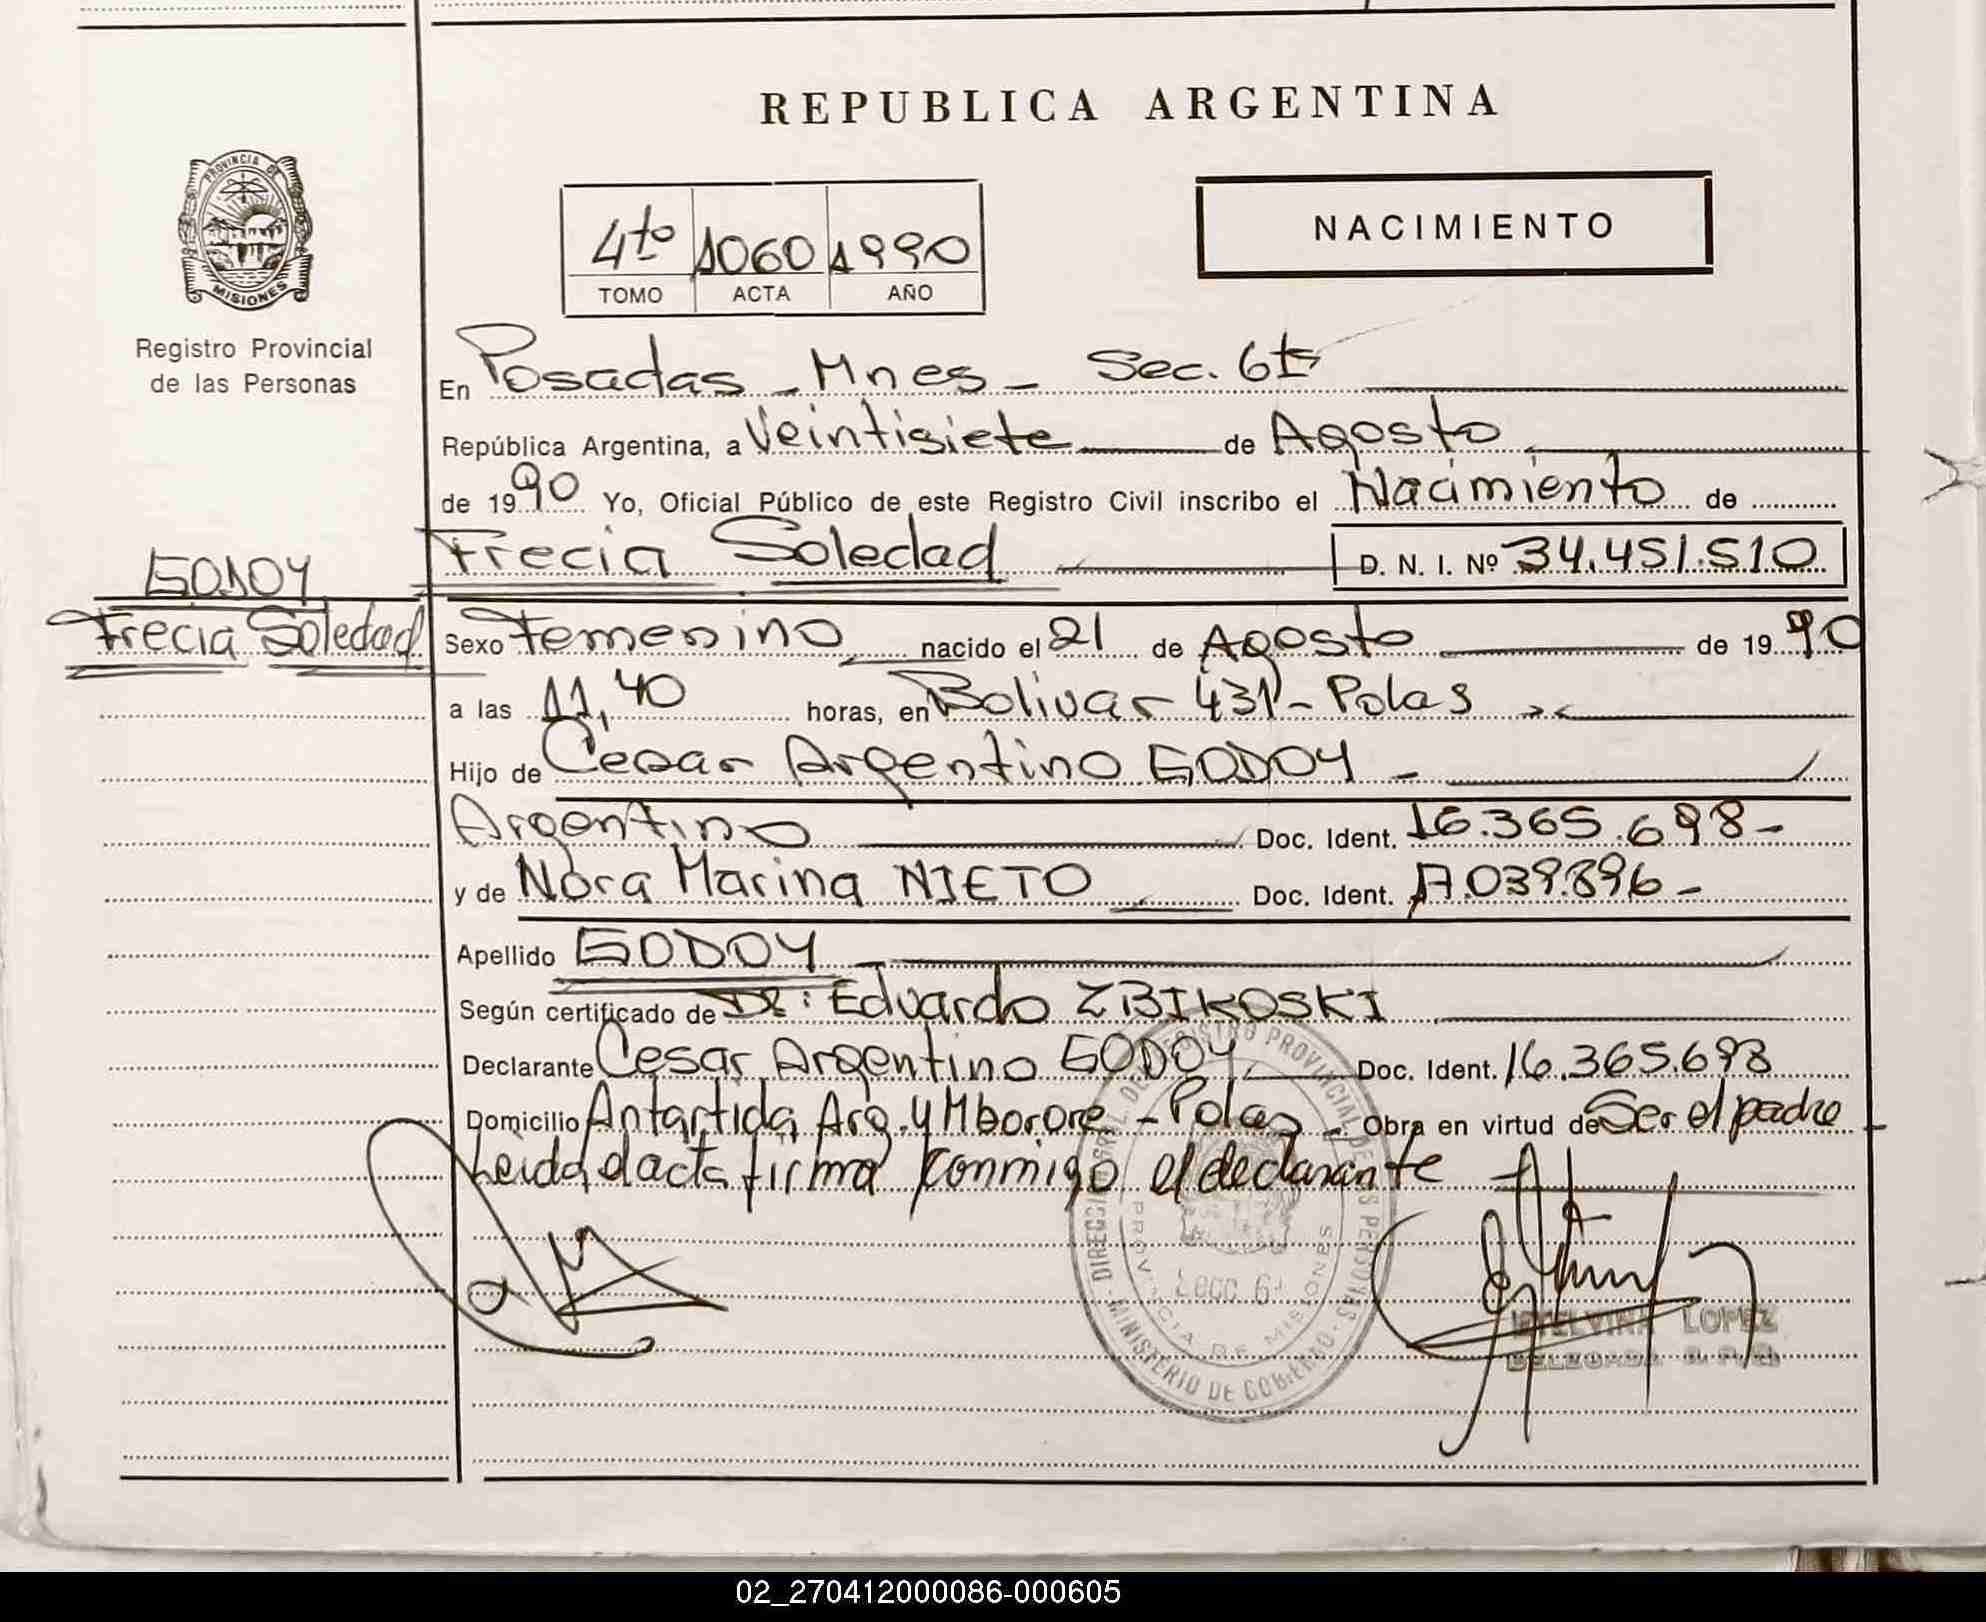 REPUBLICA ARGENTINA
PROVINCIA DE
MISIONES
Registro Provincial
de las Personas
4to 1060 1990
TOMO ACTA AÑO
NACIMIENTO
En Posadas - Mnes - Sec. 6ta
República Argentina, a Veintisiete de Agosto
de 1990 Yo, Oficial Público de este Registro Civil inscribo el Nacimiento de
Frecia Soledad D. N. I. Nº 34.451.510
GODOY
Frecia Soledad
Sexo Femenino nacido el 21 de Agosto de 1990
a las 11,40 horas, en Bolivar 431 - Pdas
Hijo de Cesar Argentino GODOY -
Argentino Doc. Ident. 16.365.698-
y de Nora Marina NIETO Doc. Ident. 17.039.896-
Apellido GODOY
Según certificado de Dr: Eduardo ZBIKOSKI
Declarante Cesar Argentino GODOY Doc. Ident. 16.365.698
Domicilio Antartida Arg. y Mborore - Pdas - Obra en virtud de Ser el padre -
Leida el acta firma conmigo el declarante
DIRECCION GRAL. DEL REGISTRO PROVINCIAL DE LAS PERSONAS
MINISTERIO DE GOBIERNO
PROVINCIA DE MISIONES
ETELVINA LOPEZ
DELEGADA R.P.P.
02_270412000086-000605